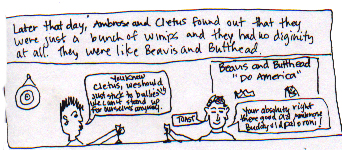 Later that day, Ambrose and Cletus found out that they
were just a bunch of wimps and they had no diginity
at all. They were like Beavis and Butthead.
You know
Cletus, we should
just stick to bullies
We can't stand up
for ourselves anyway.
Beavis and Butthead
"Do America"
TOAST
Your absolutely right
there good old Ambrose
Buddy old pal o' mine!